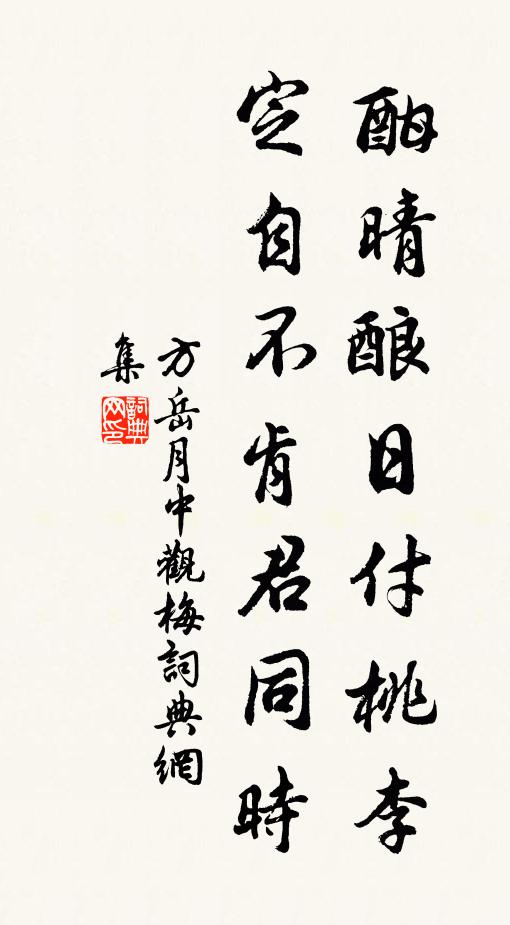 酣晴酿日付桃李
定自不肯君同時
方岳月中觀梅詞典網
集
詞典網印